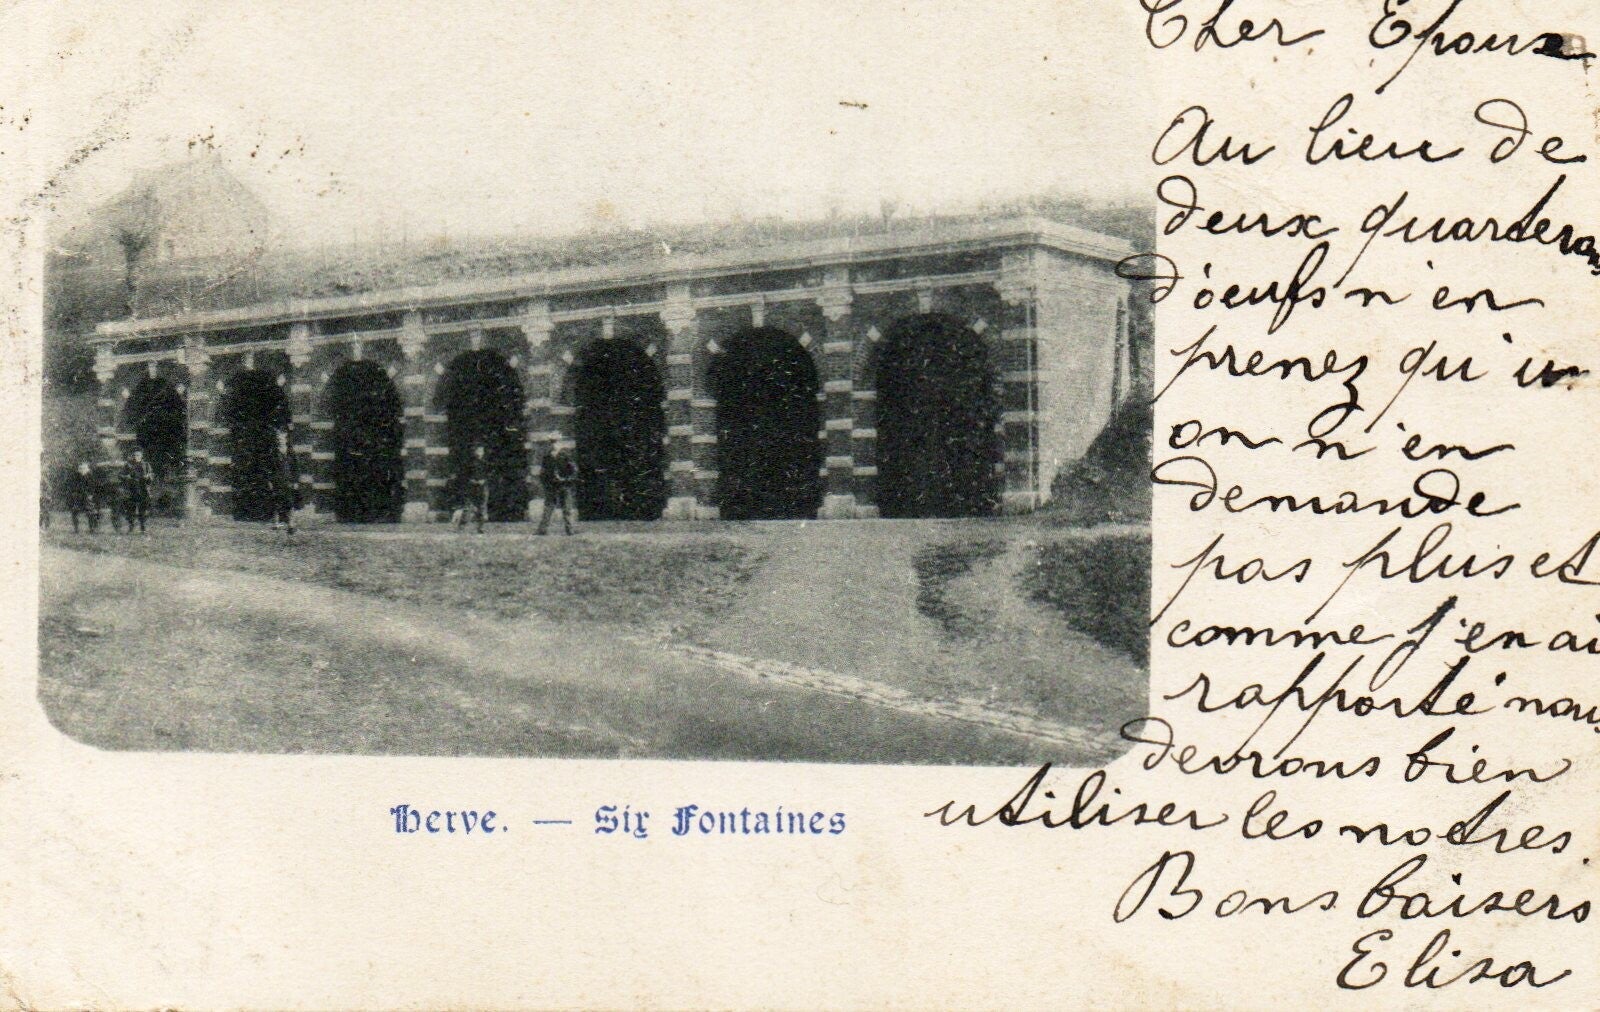 Cher Epoux
Au lieu de
deux quarterons
d'oeufs n'en
prenez qu'un
on n'en
demande
pas plus et
comme j'en ai
rapporté nous
devrons bien
utiliser les notres.
Bons baisers
Elisa
Herve. — Six Fontaines